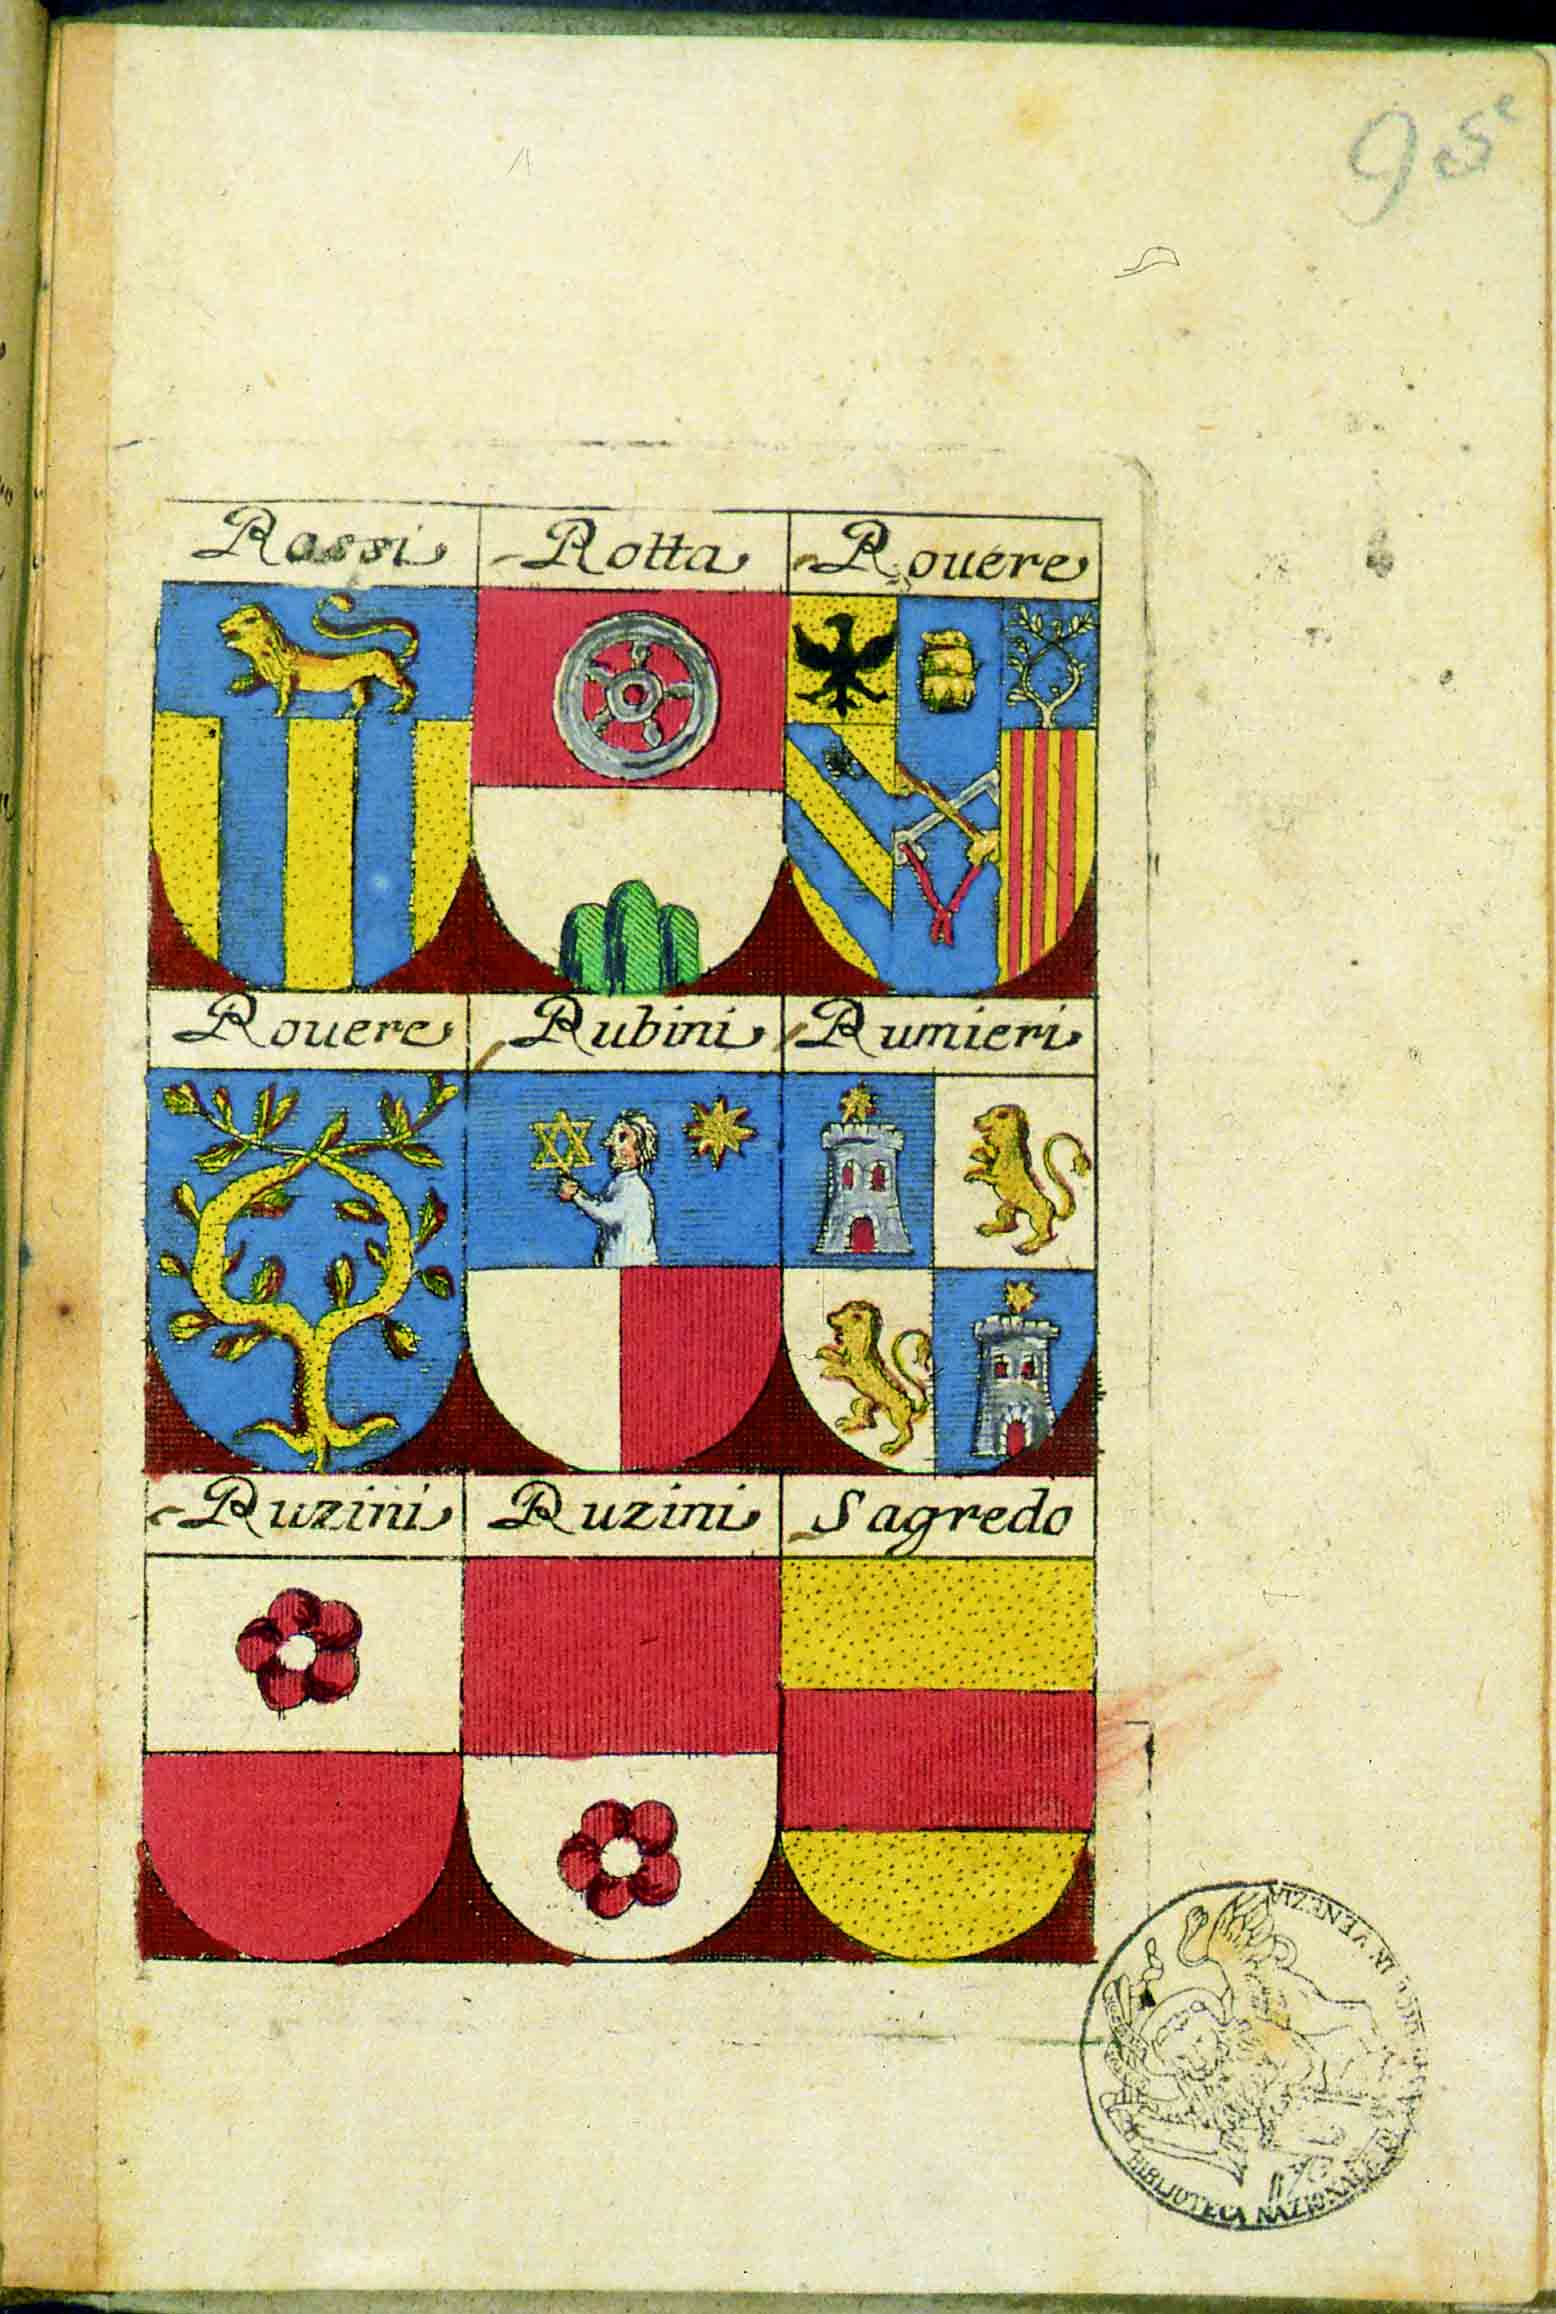 Rossi Rotta Rouere
Rouere Rubini Rumieri
Ruzini Ruzini Sagredo
BIBLIOTECA NAZIONALE
IN VENEZIA